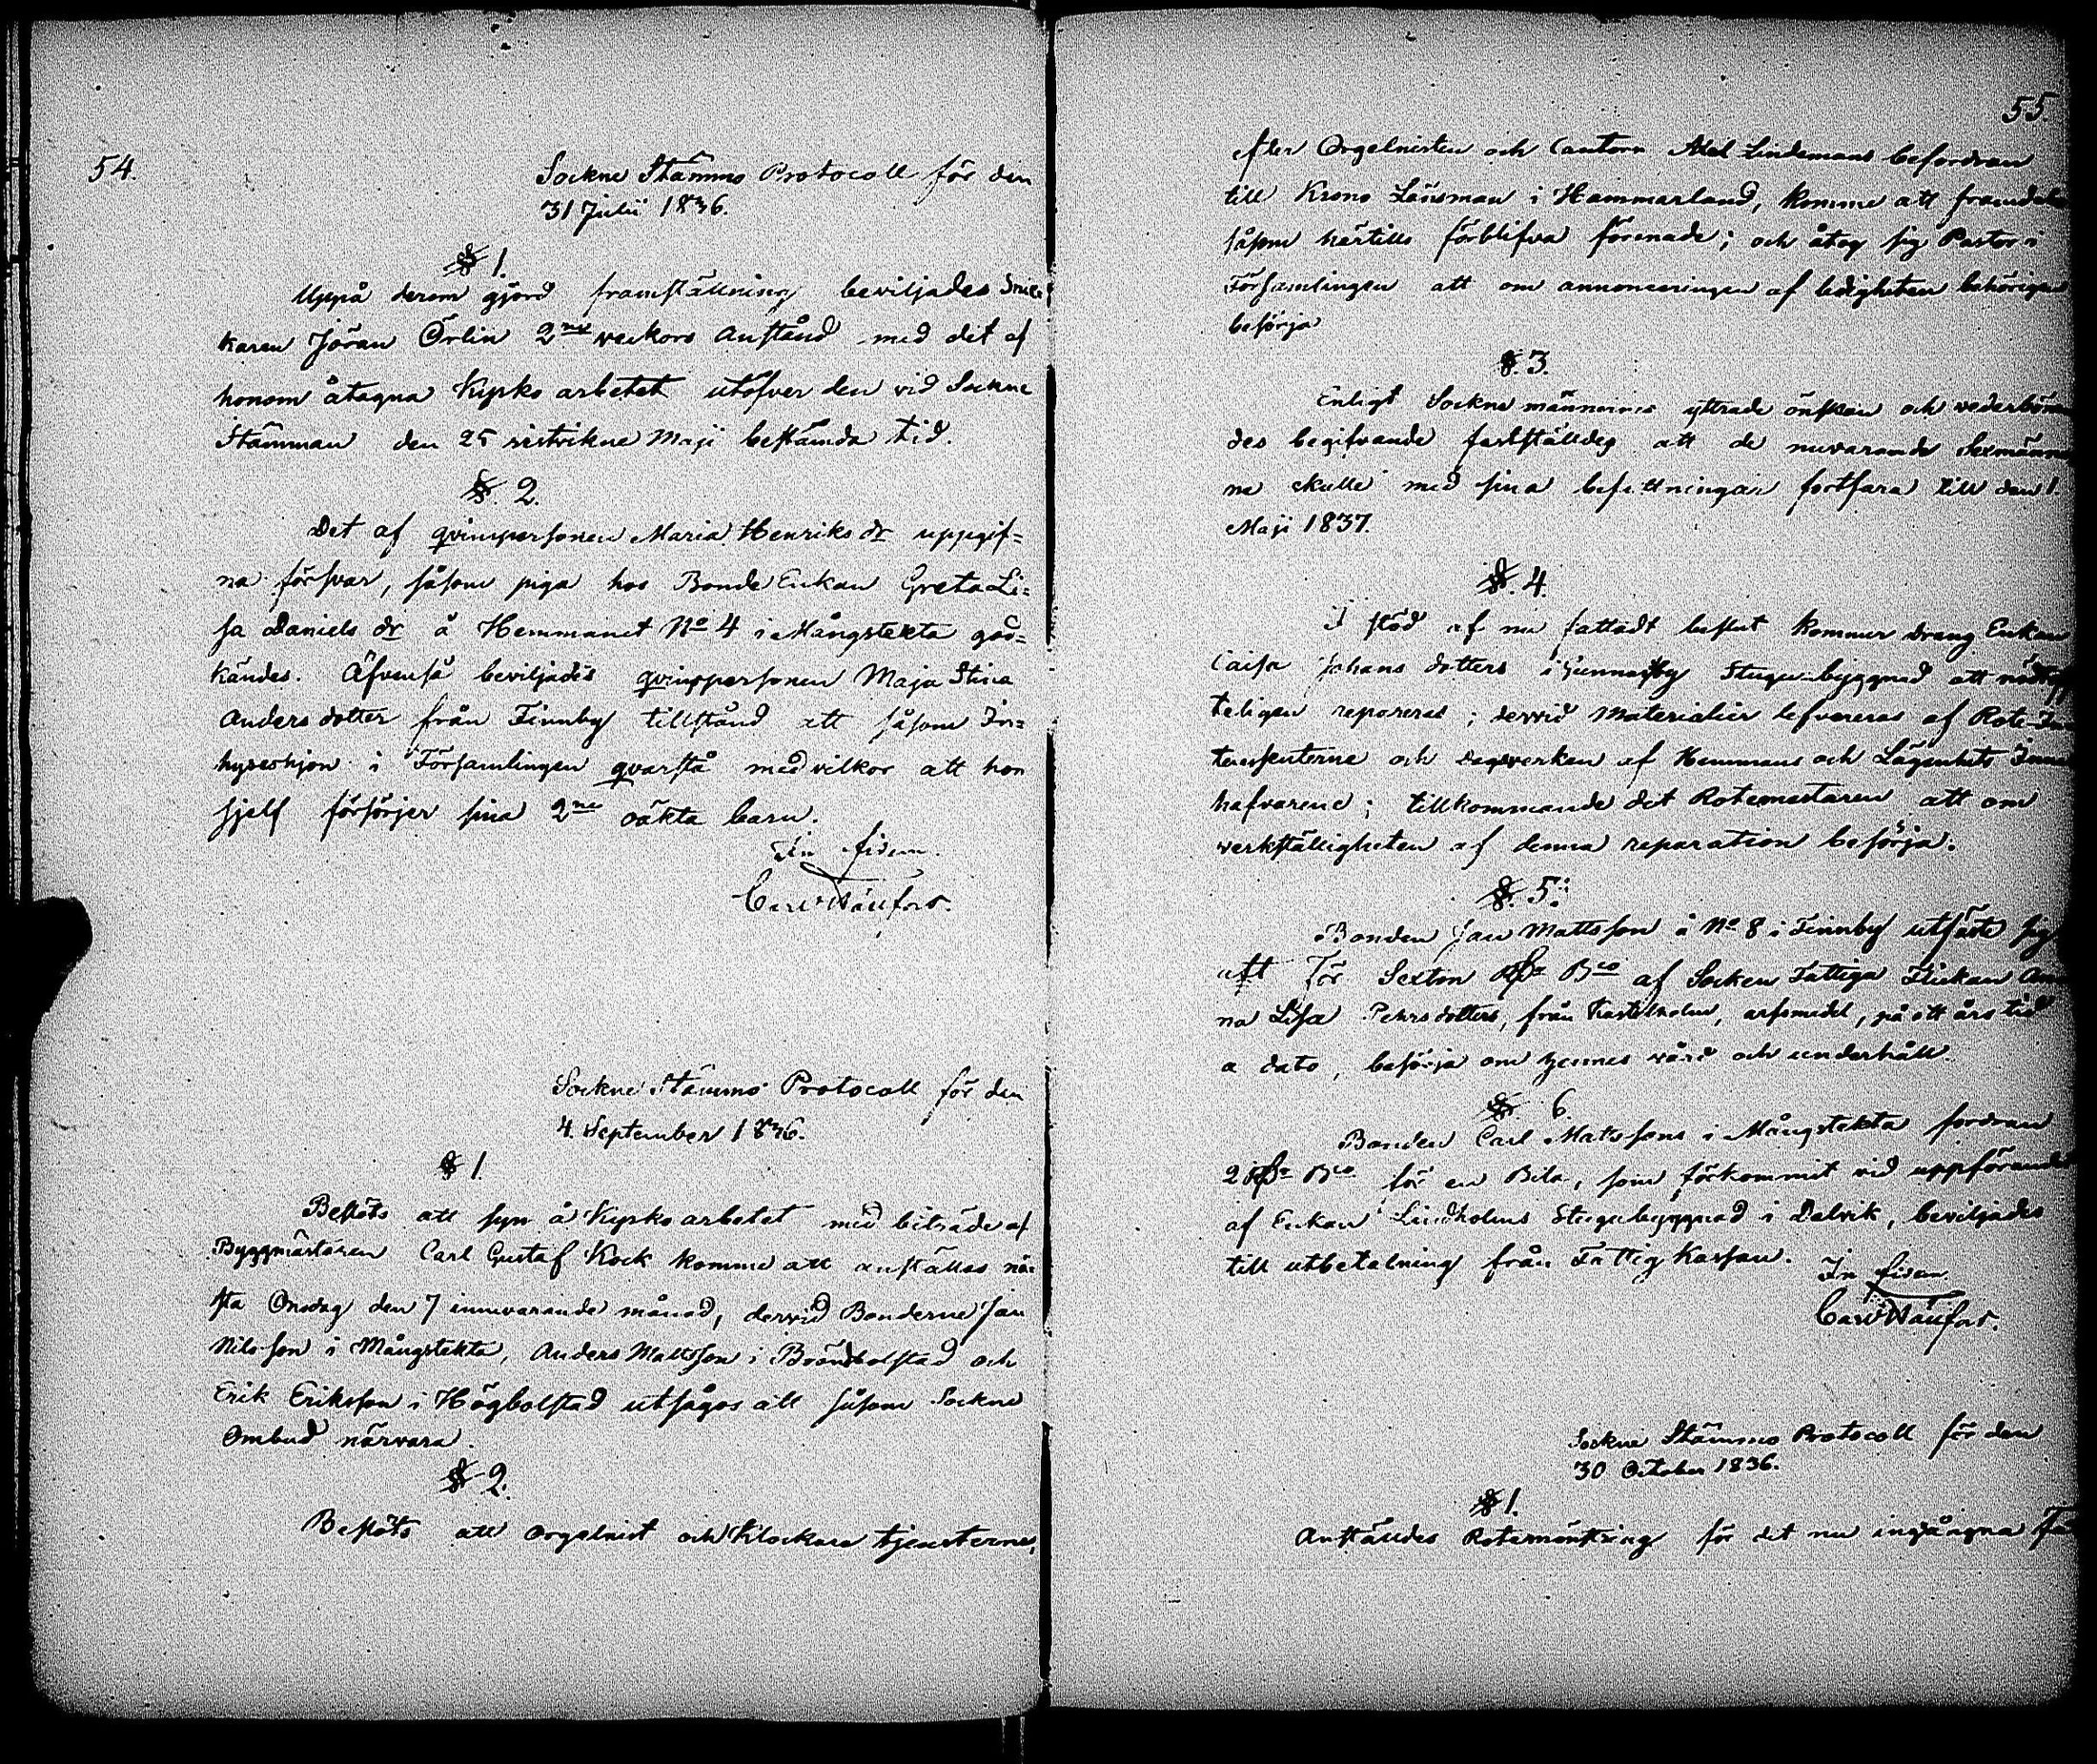 54.
Sockne Stämmo Protocoll för den
31 Julii 1836.
§ 1.
Uppå derom gjord framställning beviljades Snic-
karen Jöran Örlin 2ne veckors anstånd med det af
honom åtagna Kyrko arbetet utöfver den vid Sockne
Stämman den 25 sistvikne Maji bestämda tid.
§. 2.
Det af qvinspersonen Maria Henriks dr uppgif=
na försvar, såsom piga hos Bonde Enkan Greta Li=
sa Daniels dr å Hemmanet No 4 i Mångstekta god=
kändes. Äfvenså beviljades qvinspersonen Maja Stina
Anders dotter från Finnby tillstånd att såsom In=
hyseshjon i Församlingen qvarstå med vilkor att hon
sjelf försörjer sina 2ne oäkta barn.
In fidem
Carl
Sockne Stämmo Protocoll för den
4. September 1836.
§ 1.
Beslöts att syn å Kyrko arbetet med biträde af
Byggmästaren Carl Gustaf Kock komme att anställas nä-
sta Onsdag den 7 innevarande månad, dervid Bönderne Jan
Nilsson i Mångstekta, Anders Mattsson i Brändbolstad och
Erik Eriksson i Högbolstad utsågos att såsom Sockne
Ombud närvara.
§ 2.
Beslöts att Orgelnist och Klockare tjensterne,
55.
efter Orgelnisten och Cantorn Abel Lindemans befordran
till Krono Länsman i Hammarland, komme att framdeles
såsom härtills förblifva förenade; och åtog sig Pastor i
Församlingen att om annonceringen af ledigheten behörigen
besörja
§. 3.
Enligt Socknemännernes yttrade önskan och vederböran
des begifvande fastställdes att de nuvarande Sexmänner
ne skulle med sina befattningar fortfara till den 1.
Maji 1837.
§. 4.
I stöd af nu fattadt beslut kommer Dreng Enkan
Caisa Johans dotters i Gunnarsby Stugu-byggnad att nödtorf
teligen repareras; dervid materialier lefvereras af Rote-In
tressenterne och dagsverken af Hemmans och Lägenhets Inne
hafvarene; tillkommande det Rotemästaren att om
verkställigheten af denna reparation besörja.
§. 5.
Bonden Jan Mattsson å No 8 i Finnby utfäste sig
att för Sexton Rßr Bco af Socken Fattiga Flickan An
na Lisa Pehrsdotters, från Kastelholm, arfsmedel, på ett års tid
a dato, besörja om hennes vård och underhåll.
§. 6.
Bonden Carl Matssons i Mångstekta fordran
2 Rßr Bco för en Bila, som förkommit vid uppförandet
af Enkan Lindholms Stugubyggnad i Dalvik, beviljades
till utbetalning från Fattig Kassan.
In fidem
Carl
Sockne Stämmo Protocoll för den
30 October 1836.
§ 1.
Anställdes Rotemönstring för det nu ingångna